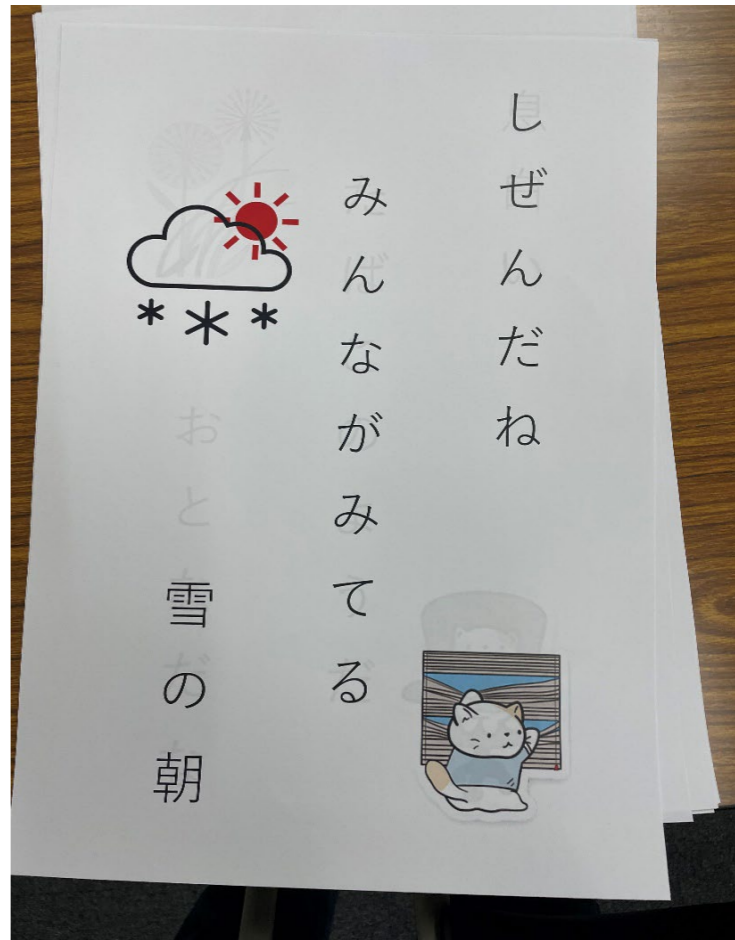 しぜんだね
みんながみてる
雪の朝